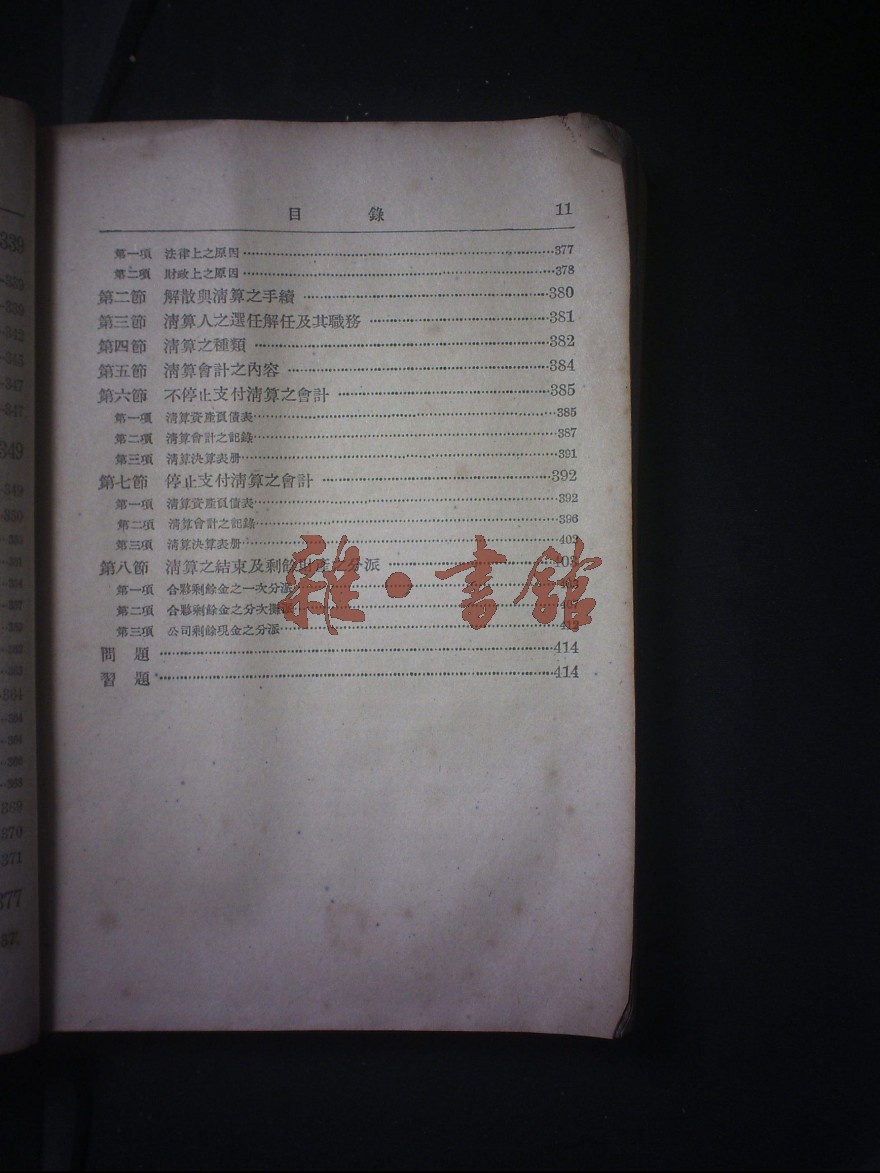 339
349
364
369
370
371
377
目錄 11
第一項 法律上之原因 377
第二項 財政上之原因 378
第二節 解散與淸算之手續 380
第三節 淸算人之選任解任及其職務 381
第四節 淸算之種類 382
第五節 淸算會計之內容 384
第六節 不停止支付淸算之會計 385
第一項 淸算資產負債表 385
第二項 淸算會計之記錄 387
第三項 淸算決算表册 391
第七節 停止支付淸算之會計 392
第一項 淸算資產負債表 392
第二項 淸算會計之記錄 396
第三項 淸算決算表册 402
第八節 淸算之結束及剩餘財產之分派 403
第一項 合夥剩餘金之一次分派
第二項 合夥剩餘金之分次攤派 407
第三項 公司剩餘現金之分派
問題 414
習題 414
雜·書館